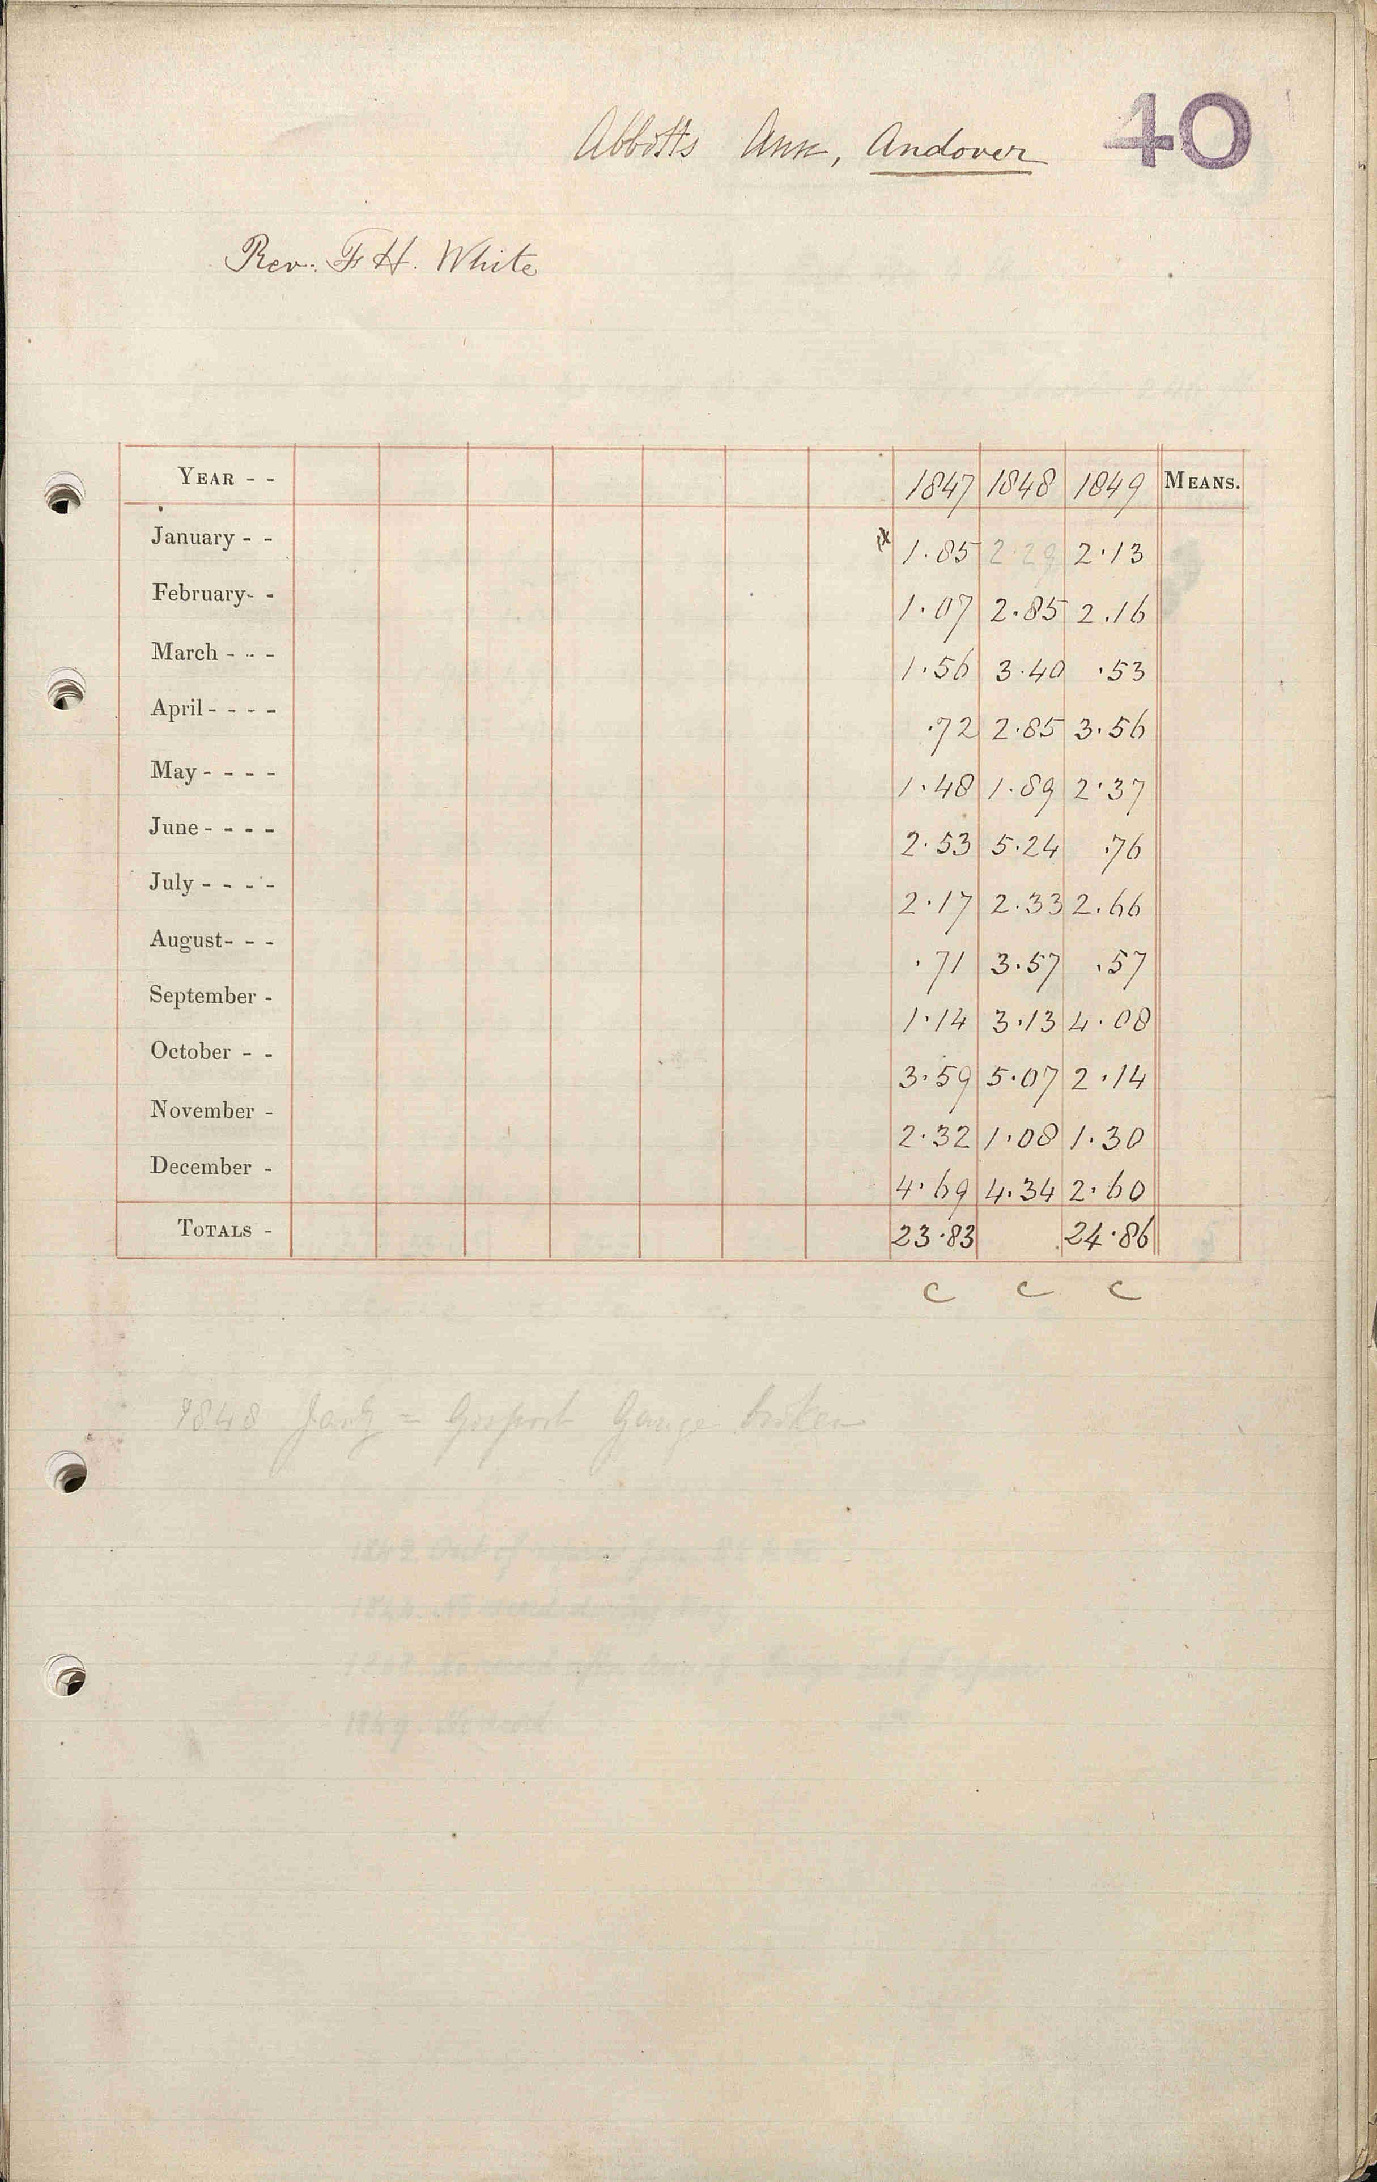 40
Abbotts Ann, Andover
Rev: F H. White
YEAR - - 1847 1848 1849 MEANS.
January - - x 1.85 2.29 2.13
February- - 1.07 2.85 2.16
March - - - 1.56 3.40 .53
April - - - - .72 2.85 3.56
May - - - - 1.48 1.89 2.37
June - - - - 2.53 5.24 .76
July - - - - 2.17 2.33 2.66
August- - - .71 3.57 .57
September - 1.14 3.13 4.08
October - - 3.59 5.07 2.14
November - 2.32 1.08 1.30
December - 4.69 4.34 2.60
TOTALS - 23.83 24.86
c c c
1848 Jany = Gosport Gauge broken